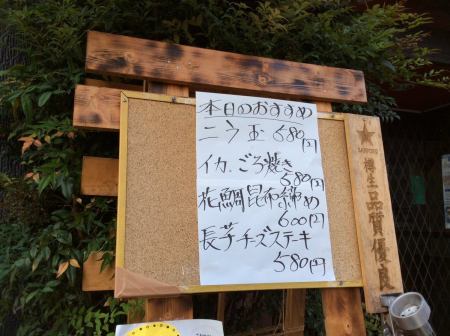 本日のおすすめ
ニラ玉 680円
イカ.ごろ焼き
580円
花鯛昆布締め
600円
長芋チーズステーキ
580円
SAPPORO
樽生品質優良